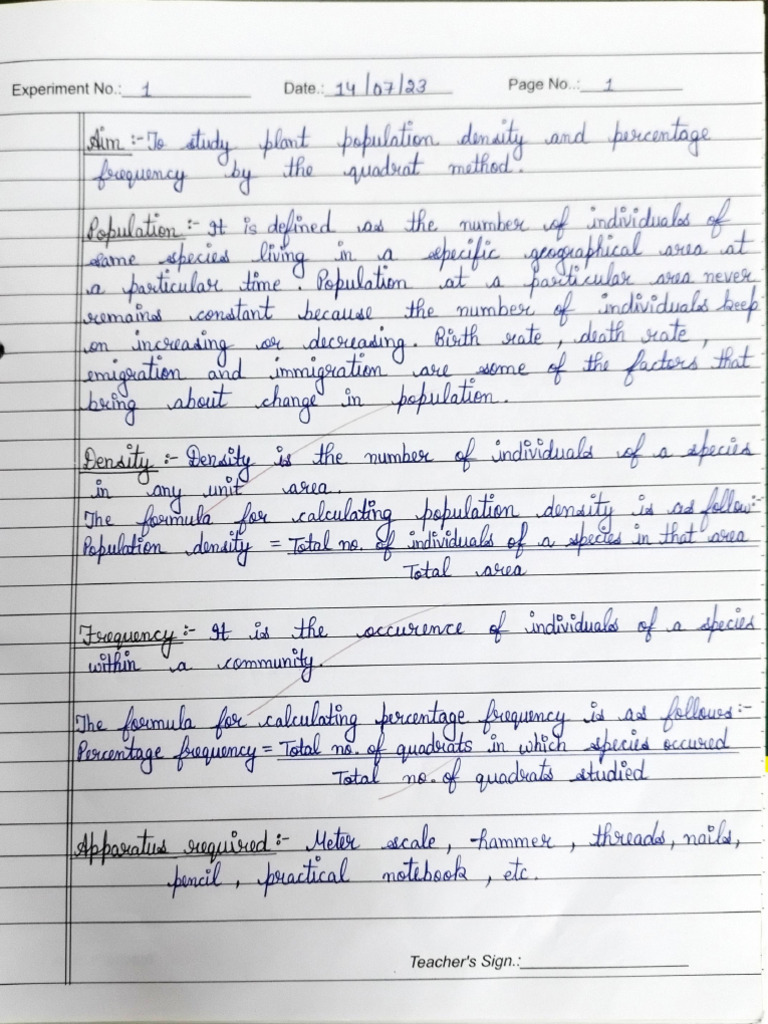 Experiment No.: 1 Date.: 14/07/23 Page No..: 1
Aim :- To study plant population density and percentage
frequency by the quadrat method.
Population :- It is defined as the number of individuals of
same species living in a specific geographical area at
a particular time. Population at a particular area never
remains constant because the number of individuals keep
on increasing or decreasing. Birth rate, death rate,
emigration and immigration are some of the factors that
bring about change in population.
Density :- Density is the number of individuals of a species
in any unit area.
The formula for calculating population density is as follow:-
Population density = Total no. of individuals of a species in that area
Total area
Frequency :- It is the occurence of individuals of a species
within a community.
The formula for calculating percentage frequency is as follows:-
Percentage frequency = Total no. of quadrats in which species occured
Total no. of quadrats studied
Apparatus required :- Meter scale, hammer, threads, nails,
pencil, practical notebook, etc.
Teacher's Sign.: